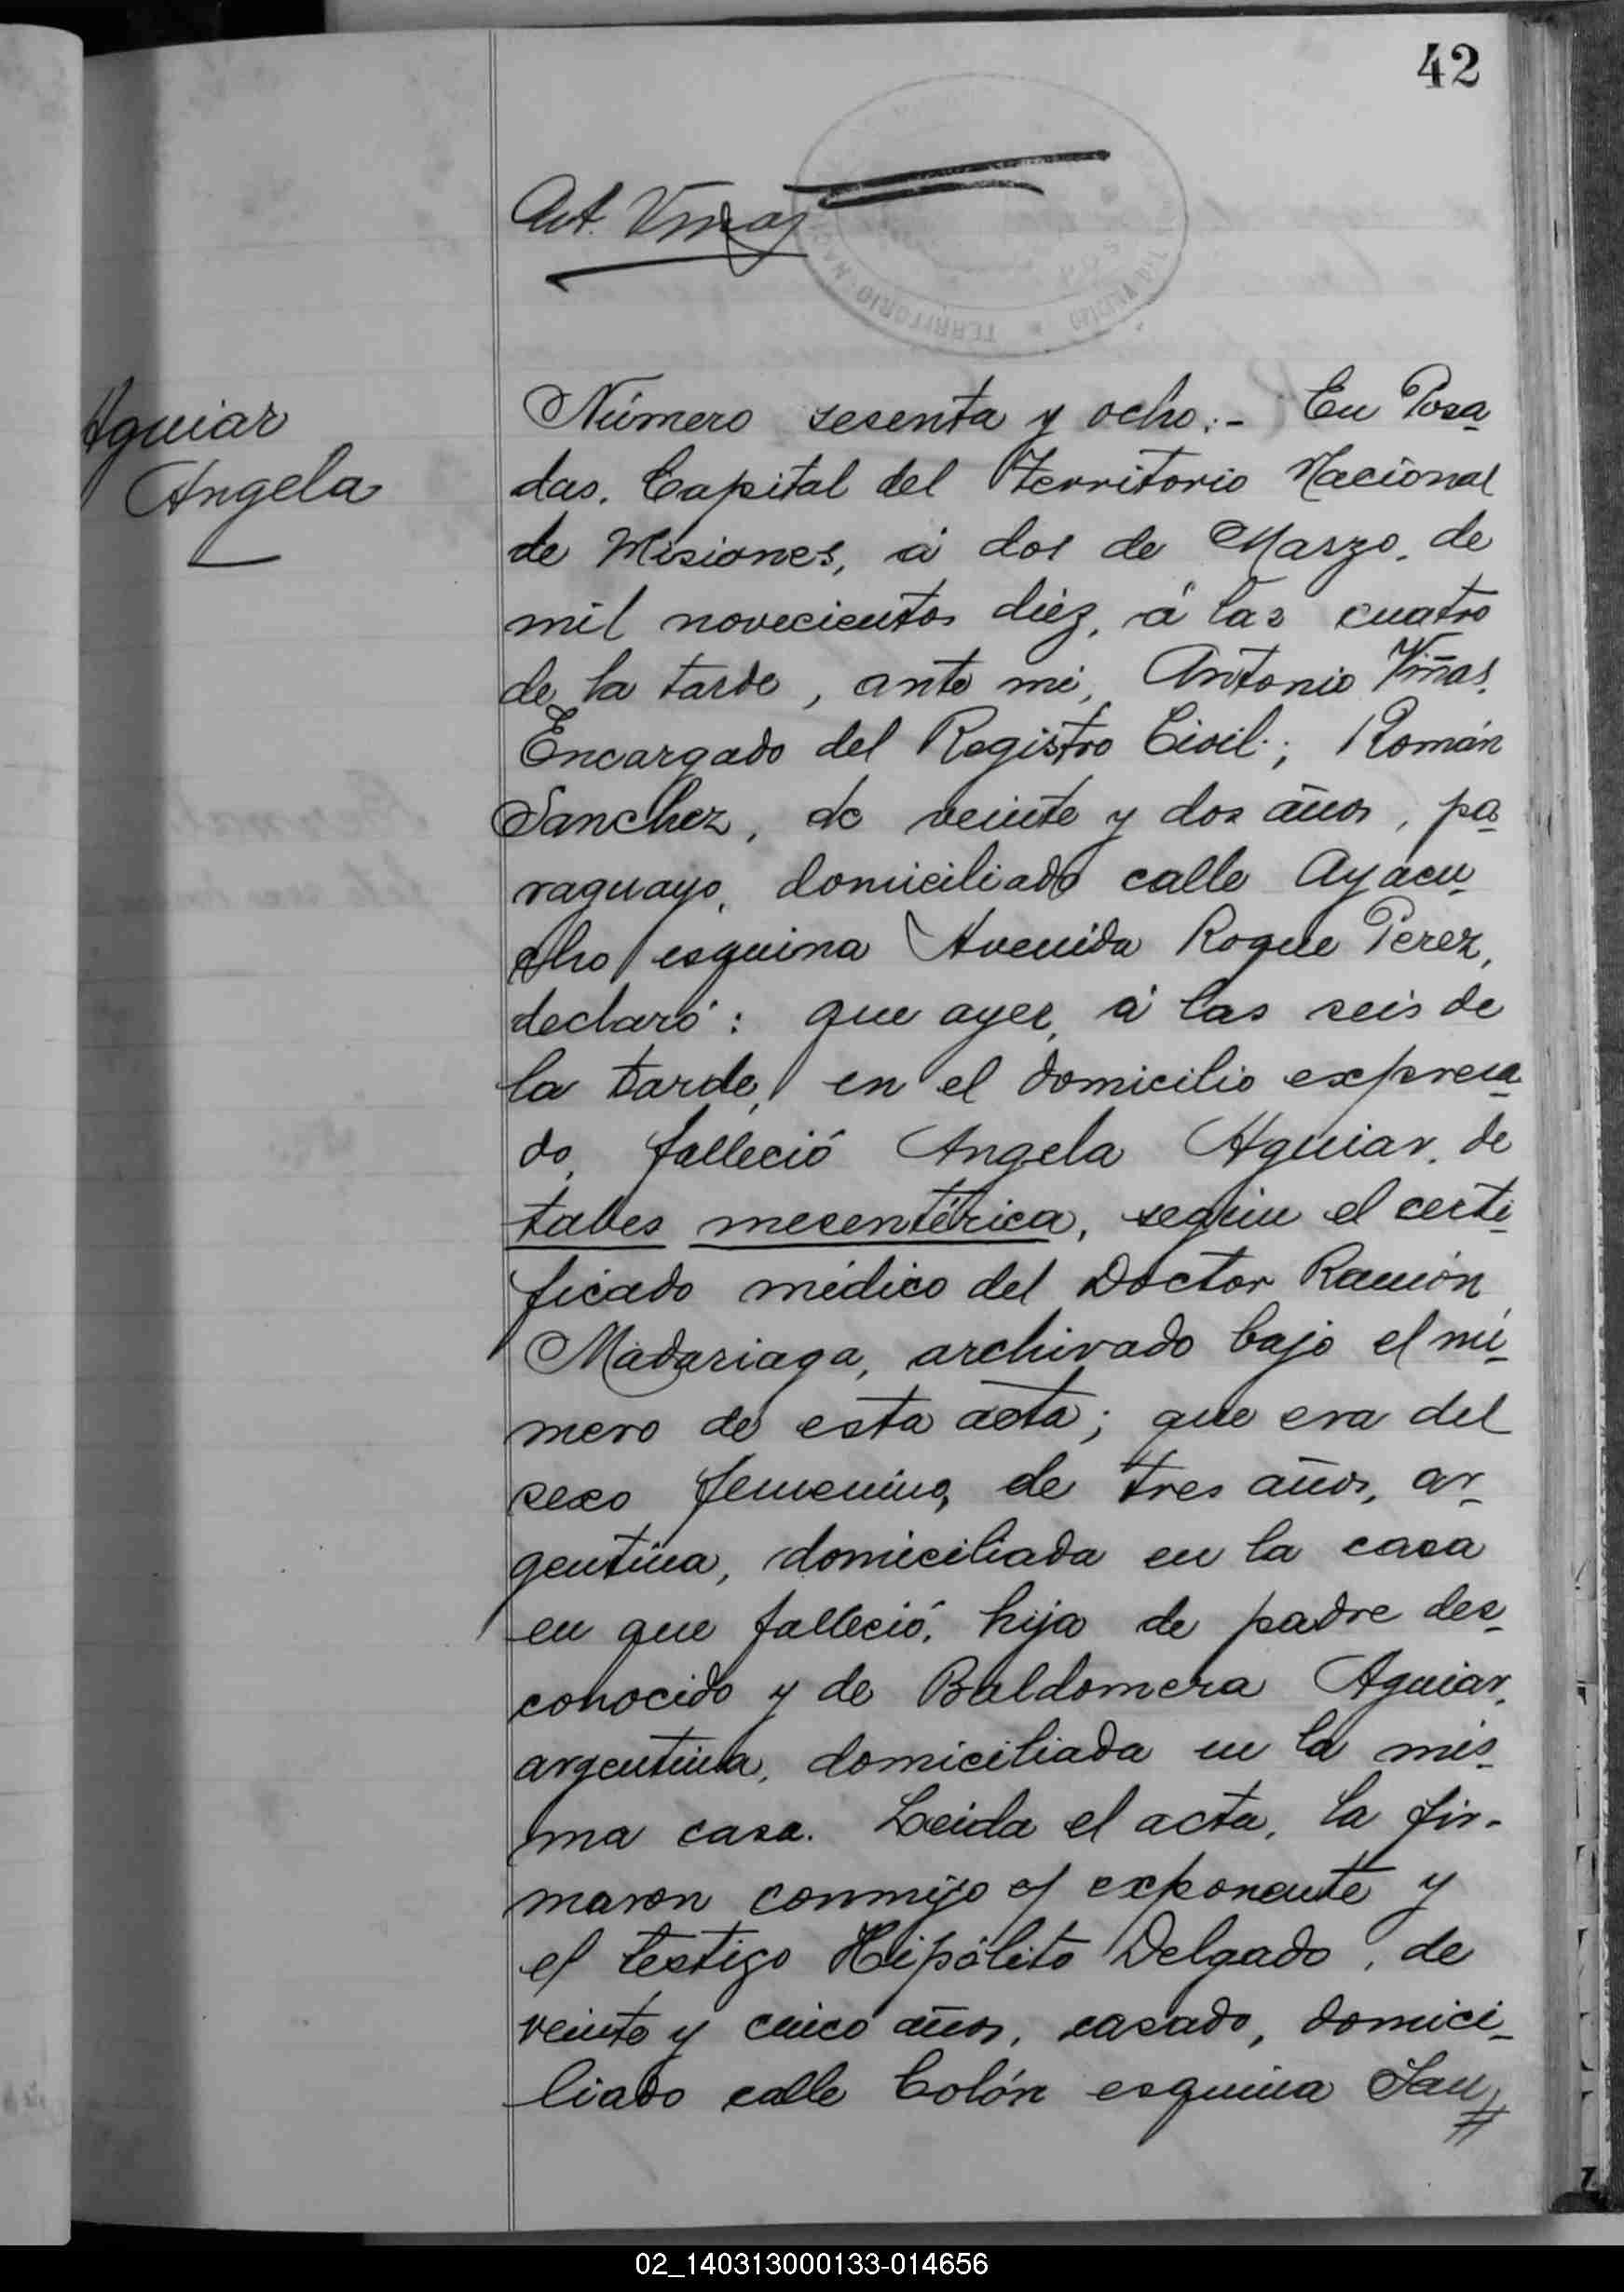 42
Ant. Viñas
TERRITORIO NA
Aguiar
Angela
Número sesenta y ocho:- En Posa-
das, Capital del Territorio Nacional
de Misiones, á dos de Marzo, de
mil novecientos diéz, á las cuatro
de la tarde, ante mi, Antonio Viñas,
Encargado del Registro Civil; Román
Sanchez, de veinte y dos años, pa-
raguayo, domiciliado calle Ayacu-
cho esquina Avenida Roque Perez,
declaró: que ayer, á las seis de
la tarde, en el domicilio expresa-
do, falleció Angela Aguiar, de
tabes mesentérica, según el certi-
ficado médico del Doctor Ramón
Madariaga, archivado bajo el nú-
mero de esta acta; que era del
sexo femenino, de tres años, ar-
gentina, domiciliada en la casa
en que falleció, hija de padre des-
conocido y de Baldomera Aguiar,
argentina, domiciliada en la mis-
ma casa. Leida el acta, la fir-
maron conmigo el exponente y
el testigo Hipólito Delgado, de
veinte y cinco años, casado, domici-
liado calle Colón esquina San
02_140313000133-014656